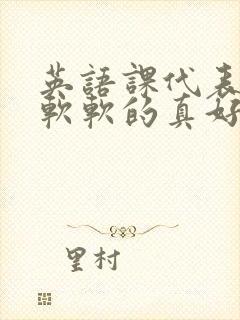 英語課代表
軟軟的真好
里村